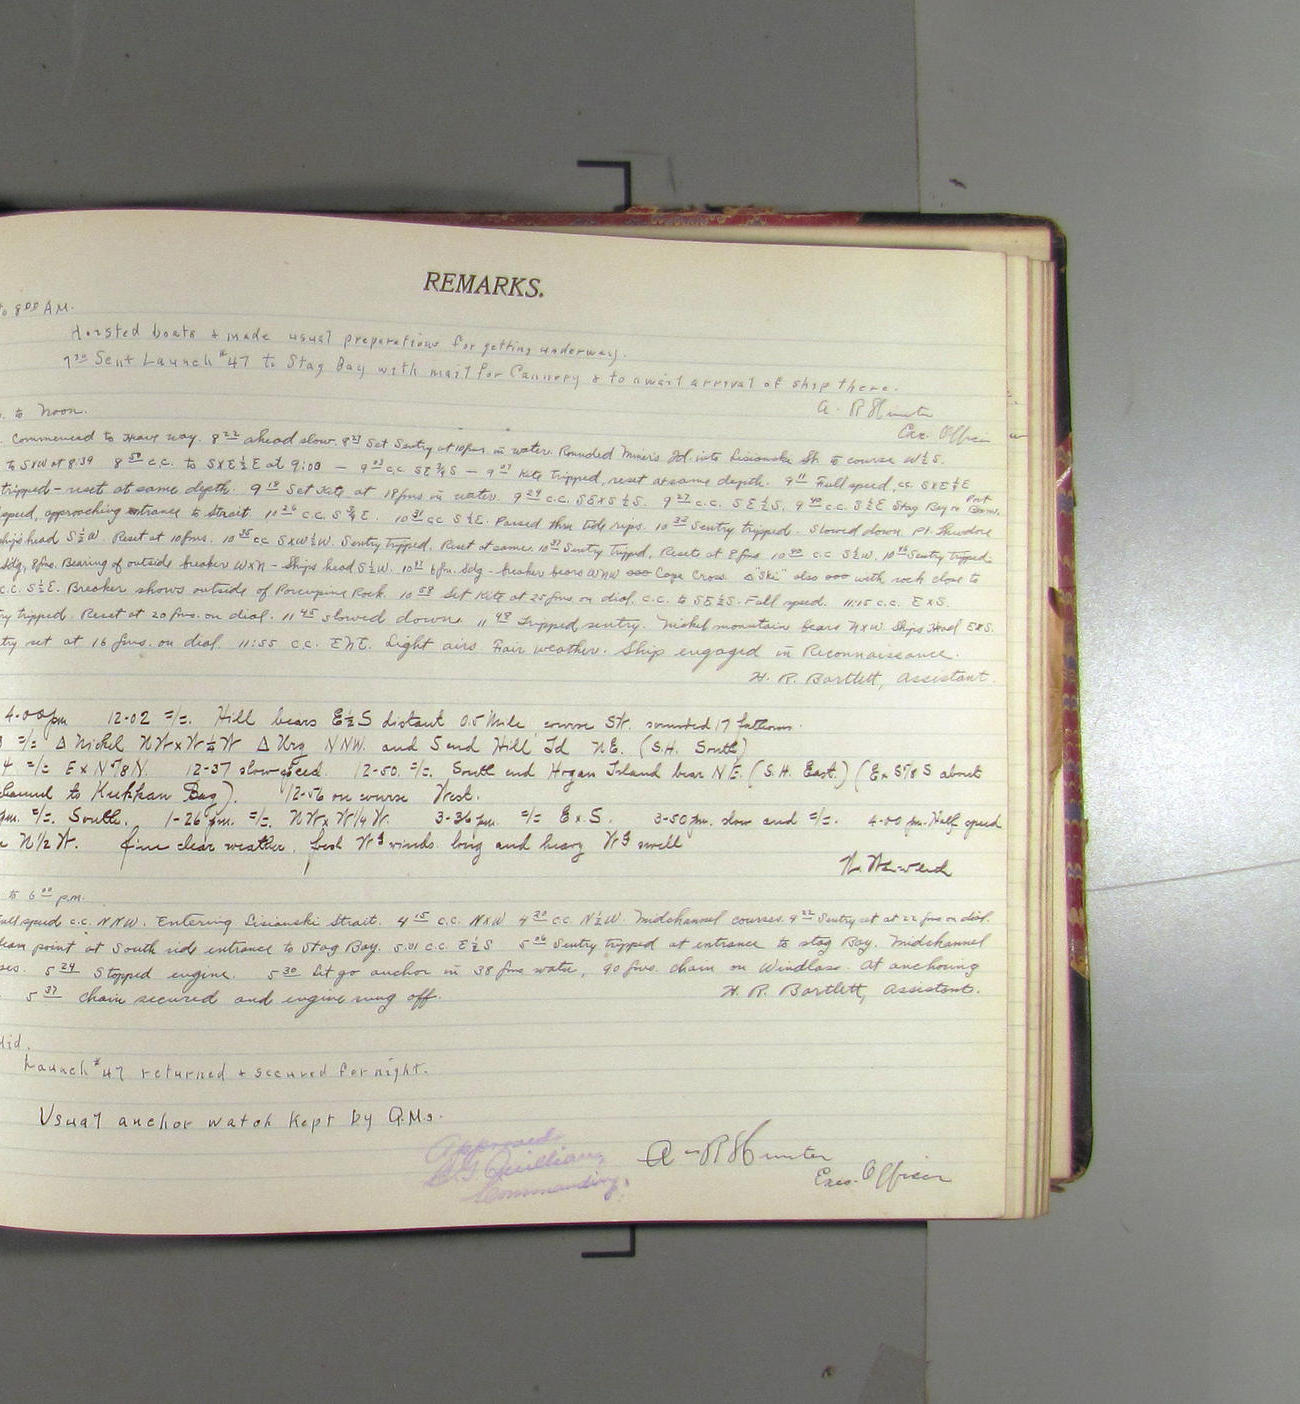 REMARKS.
to 8 00 AM.
Hoisted boats & made usual preparations for getting underway.
7 30 Sent Launch #47 to Stag Bay with mail for Cannery & to await arrival of ship there.
A. R Hunter
Exc. Officer
to Noon.
Commenced to heave way. 8 22 ahead slow. 8 27 Set Sentry at 10 fms. in water. Rounded Miner's Isl. into Lisianski St. to course W½S.
to SxW at 8:39 8 50 c.c. to SxE½E at 9:00 — 9 03 c.c. SE¾S — 9 07 Kite tripped, reset at same depth. 9 11 Full speed, cc. SxE½E
tripped – reset at same depth. 9 18 Set Kite at 18 fms in water. 9 24 c.c. SExS½S. 9 27 c.c. SE½S, 9 40 c.c. S½E Stag Bay on Port Beam.
speed, approaching entrance to Strait 10 26 c.c. S¾E. 10 31 cc S½E. Passed thru tide rips. 10 32 Sentry tripped. Slowed down Pt. Theodore
ship's head S½W. Reset at 10 fms. 10 35 cc SxW½W. Sentry tripped. Reset at same. 10 37 Sentry tripped, Reset at 8 fms 10 40 c.c S½W. 10 46 Sentry tripped.
Sdg, 8 fms. Bearing of outside breaker WxN – Ships head S½W. 10 51 6 fm. Sdg – breaker bears WNW Cape Cross. △"Ski" also with rock close to
c.c. S½E. Breaker shows outside of Porcupine Rock. 10 58 Set Kite at 25 fms on dial. c.c. to SE½S. Full speed. 11:15 c.c. ExS.
tripped. Reset at 20 fms. on dial. 11 45 slowed down. 11 48 Tripped sentry. Nickel mountain bears NxW. Ships Head ExS.
set at 16 fms. on dial. 11:55 c.c. ENE. Light airs Fair weather. Ship engaged in Reconnaissance.
H. R. Bartlett, Assistant.
4-00 pm 12-02 c/c. Hill bears E½S distant 0.5 Mile course sounded 17 fathoms.
c/c △ Nickel NWxW½W △ Urq NNW. and Send Hill Id NE. (S.H. South)
c/c ExN7/8N. 12-37 slow speed. 12-50. c/c. South end Hogan Island bear NE. (S.H. East.) (ExS7/8S about
channel to Kukkan Bay). 12-56 on course West.
pm. c/c. South. 1-26 pm. c/c. NWxW1/4W. 3-36 pm. c/c ExS. 3-50 pm. slow and c/c. 4-00 pm. Half speed
N1/2W. fine clear weather. fresh Wly winds. long and heavy Wly swell
to 6 00 p.m.
Full speed c.c. NNW. Entering Lisianski Strait. 4 15 c.c. NxW 4 20 c.c. N½W. Midchannel courses. 4 22 Sentry set at 22 fms on dial.
point at South side entrance to Stag Bay. 5:01 c.c. E½S 5 06 Sentry tripped at entrance to Stag Bay. Midchannel
5 24 Stopped engine. 5 30 Let go anchor in 38 fms water, 90 fms. chain on Windlass. At anchoring
5 37 chain secured and engine rung off.
H. R. Bartlett, Assistant.
Mid.
Launch #47 returned & secured for night.
Usual anchor watch kept by Q.M.s.
Approved
Quillian,
Commanding.
A R Hunter
Exec. Officer